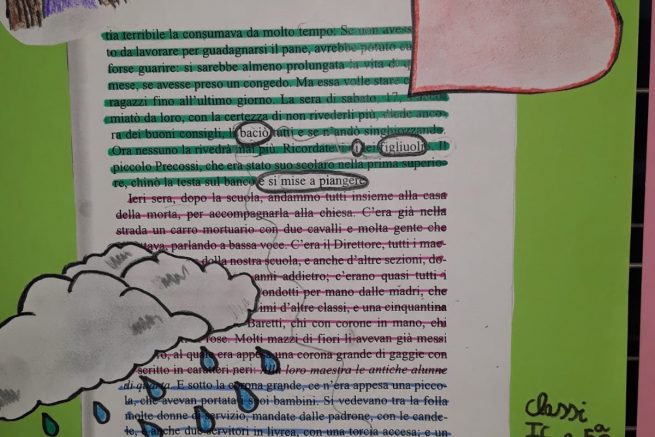 tia terribile la consumava da molto tempo. Se non avesse
to da lavorare per guadagnarsi il pane, avrebbe potuto
forse guarire: si sarebbe almeno prolungata la vita
mese, se avesse preso un congedo. Ma essa volle stare
ragazzi fino all'ultimo giorno. La sera di sabato, 17,
miatò da loro, con la certezza di non rivederli più, diede anco-
ra dei buoni consigli, li baciò tutti e se n'andò singhiozzando.
Ora nessuno la rivedrà mai più. Ricordate figliuoli. Il
piccolo Precossi, che era stato suo scolaro nella prima superio-
re, chinò la testa sul banco e si mise a piangere.
Ieri sera, dopo la scuola, andammo tutti insieme alla casa
della morta, per accompagnarla alla chiesa. C'era già nella
strada un carro mortuario con due cavalli e molta gente che
parlando a bassa voce. C'era il Direttore, tutti i mae-
della nostra scuola, e anche d'altre sezioni, do-
anni addietro; c'erano quasi tutti i
condotti per mano dalle madri, che
d'altre classi, e una cinquantina
Baretti, chi con corone in mano, chi
rose. Molti mazzi di fiori li avevan già messi
al quale era appesa una corona grande di gaggìe con
scritto in caratteri neri: loro maestra le antiche alunne
di quarta. E sotto la corona grande, ce n'era appesa una picco-
la, che avevan portata i suoi bambini. Si vedevano tra la folla
molte donne di servizio, mandate dalle padrone, con le cande-
le, e anche due servitori in livrea, con una torcia accesa; e un
Classi